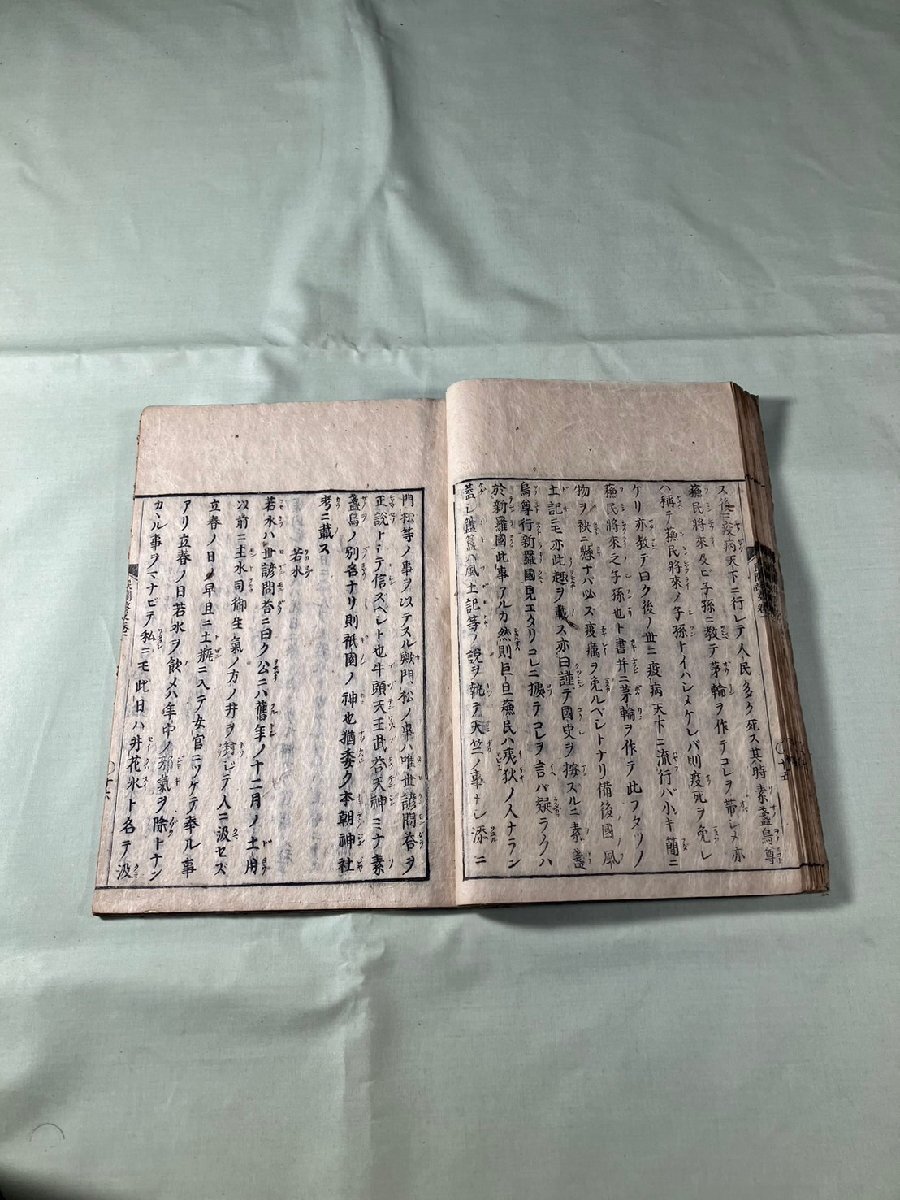 ス後ニ疫病天下ニ行レテ人民多ク死ス其時素盞烏尊
蘓民將來及ヒ子孫ニ教テ茅輪ヲ作テコレヲ帶シメ亦
ハ稱テ蘓民將來ノ子孫トイハシメケレバ則疫死ヲ免レ
ケリ亦教テ曰ク後ノ世ニ疫病天下ニ流行バ小キ簡ニ
蘓民將來之子孫也ト書并ニ茅輪ヲ作テ此フタツノ
物ヲ袂ニ縣ナバ必ス疫癘ヲ免ルベシトナリ備後國ノ風
土記ニモ亦此趣ヲ載ス亦曰謹テ國史ヲ按スルニ素盞
烏尊行新羅國見エタリコレニ據テコレヲ言バ疑ラクハ
於新羅國此事アルカ然則巨旦蘓民ハ夷狄ノ人ナラン
蓋シ簠簋ハ風土記等ノ說ヲ執テ天竺ノ事ナシ添ニ
門松等ノ事ヲ以テスル歟門松ノ事ハ唯世諺問荅ヲ
正說トシテ信スベシト也牛頭天王武荅天神ミナ素
盞烏ノ別名ナリ則祇園ノ神也猶委ク本朝神社
考ニ載ス
若水
若水ハ世諺問荅ニ曰ク公ニハ舊年ノ十二月ノ土用
以前ニ主水司御生氣ノ方ノ井ヲ封シテ人ニ汲セス
立春ノ日ノ早旦ニ土瓶ニ入テ女官ニツケテ奉ル事
アリ立春ノ日若水ヲ飮メハ年中ノ邪氣ヲ除トナン
カヽル事ヲマナビテ私ニモ此日ハ井花水ト名テ汲